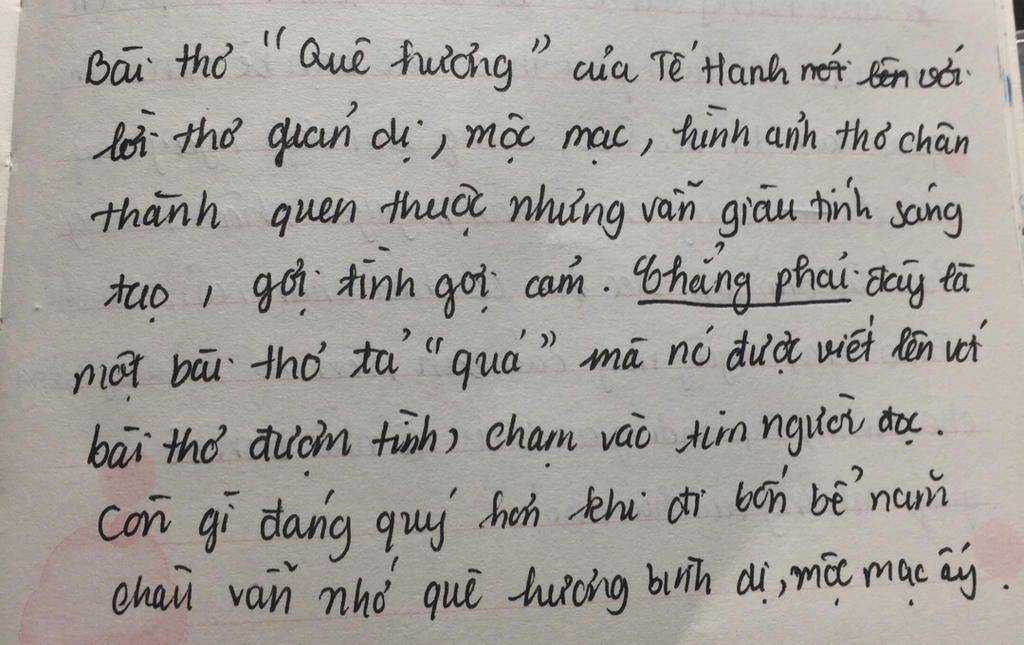 Bài thơ "Quê hương" của Tế Hanh nét lên với
lời thơ giản dị, mộc mạc, hình ảnh thơ chân
thành quen thuộc nhưng vẫn giàu tính sáng
tạo, gợi tình gợi cảm. Chẳng phải đây là
một bài thơ tả "quá" mà nó được viết lên với
bài thơ đượm tình, chạm vào tim người đọc.
Còn gì đáng quý hơn khi đi bốn bể năm
châu vẫn nhớ quê hương bình dị, mộc mạc ấy.